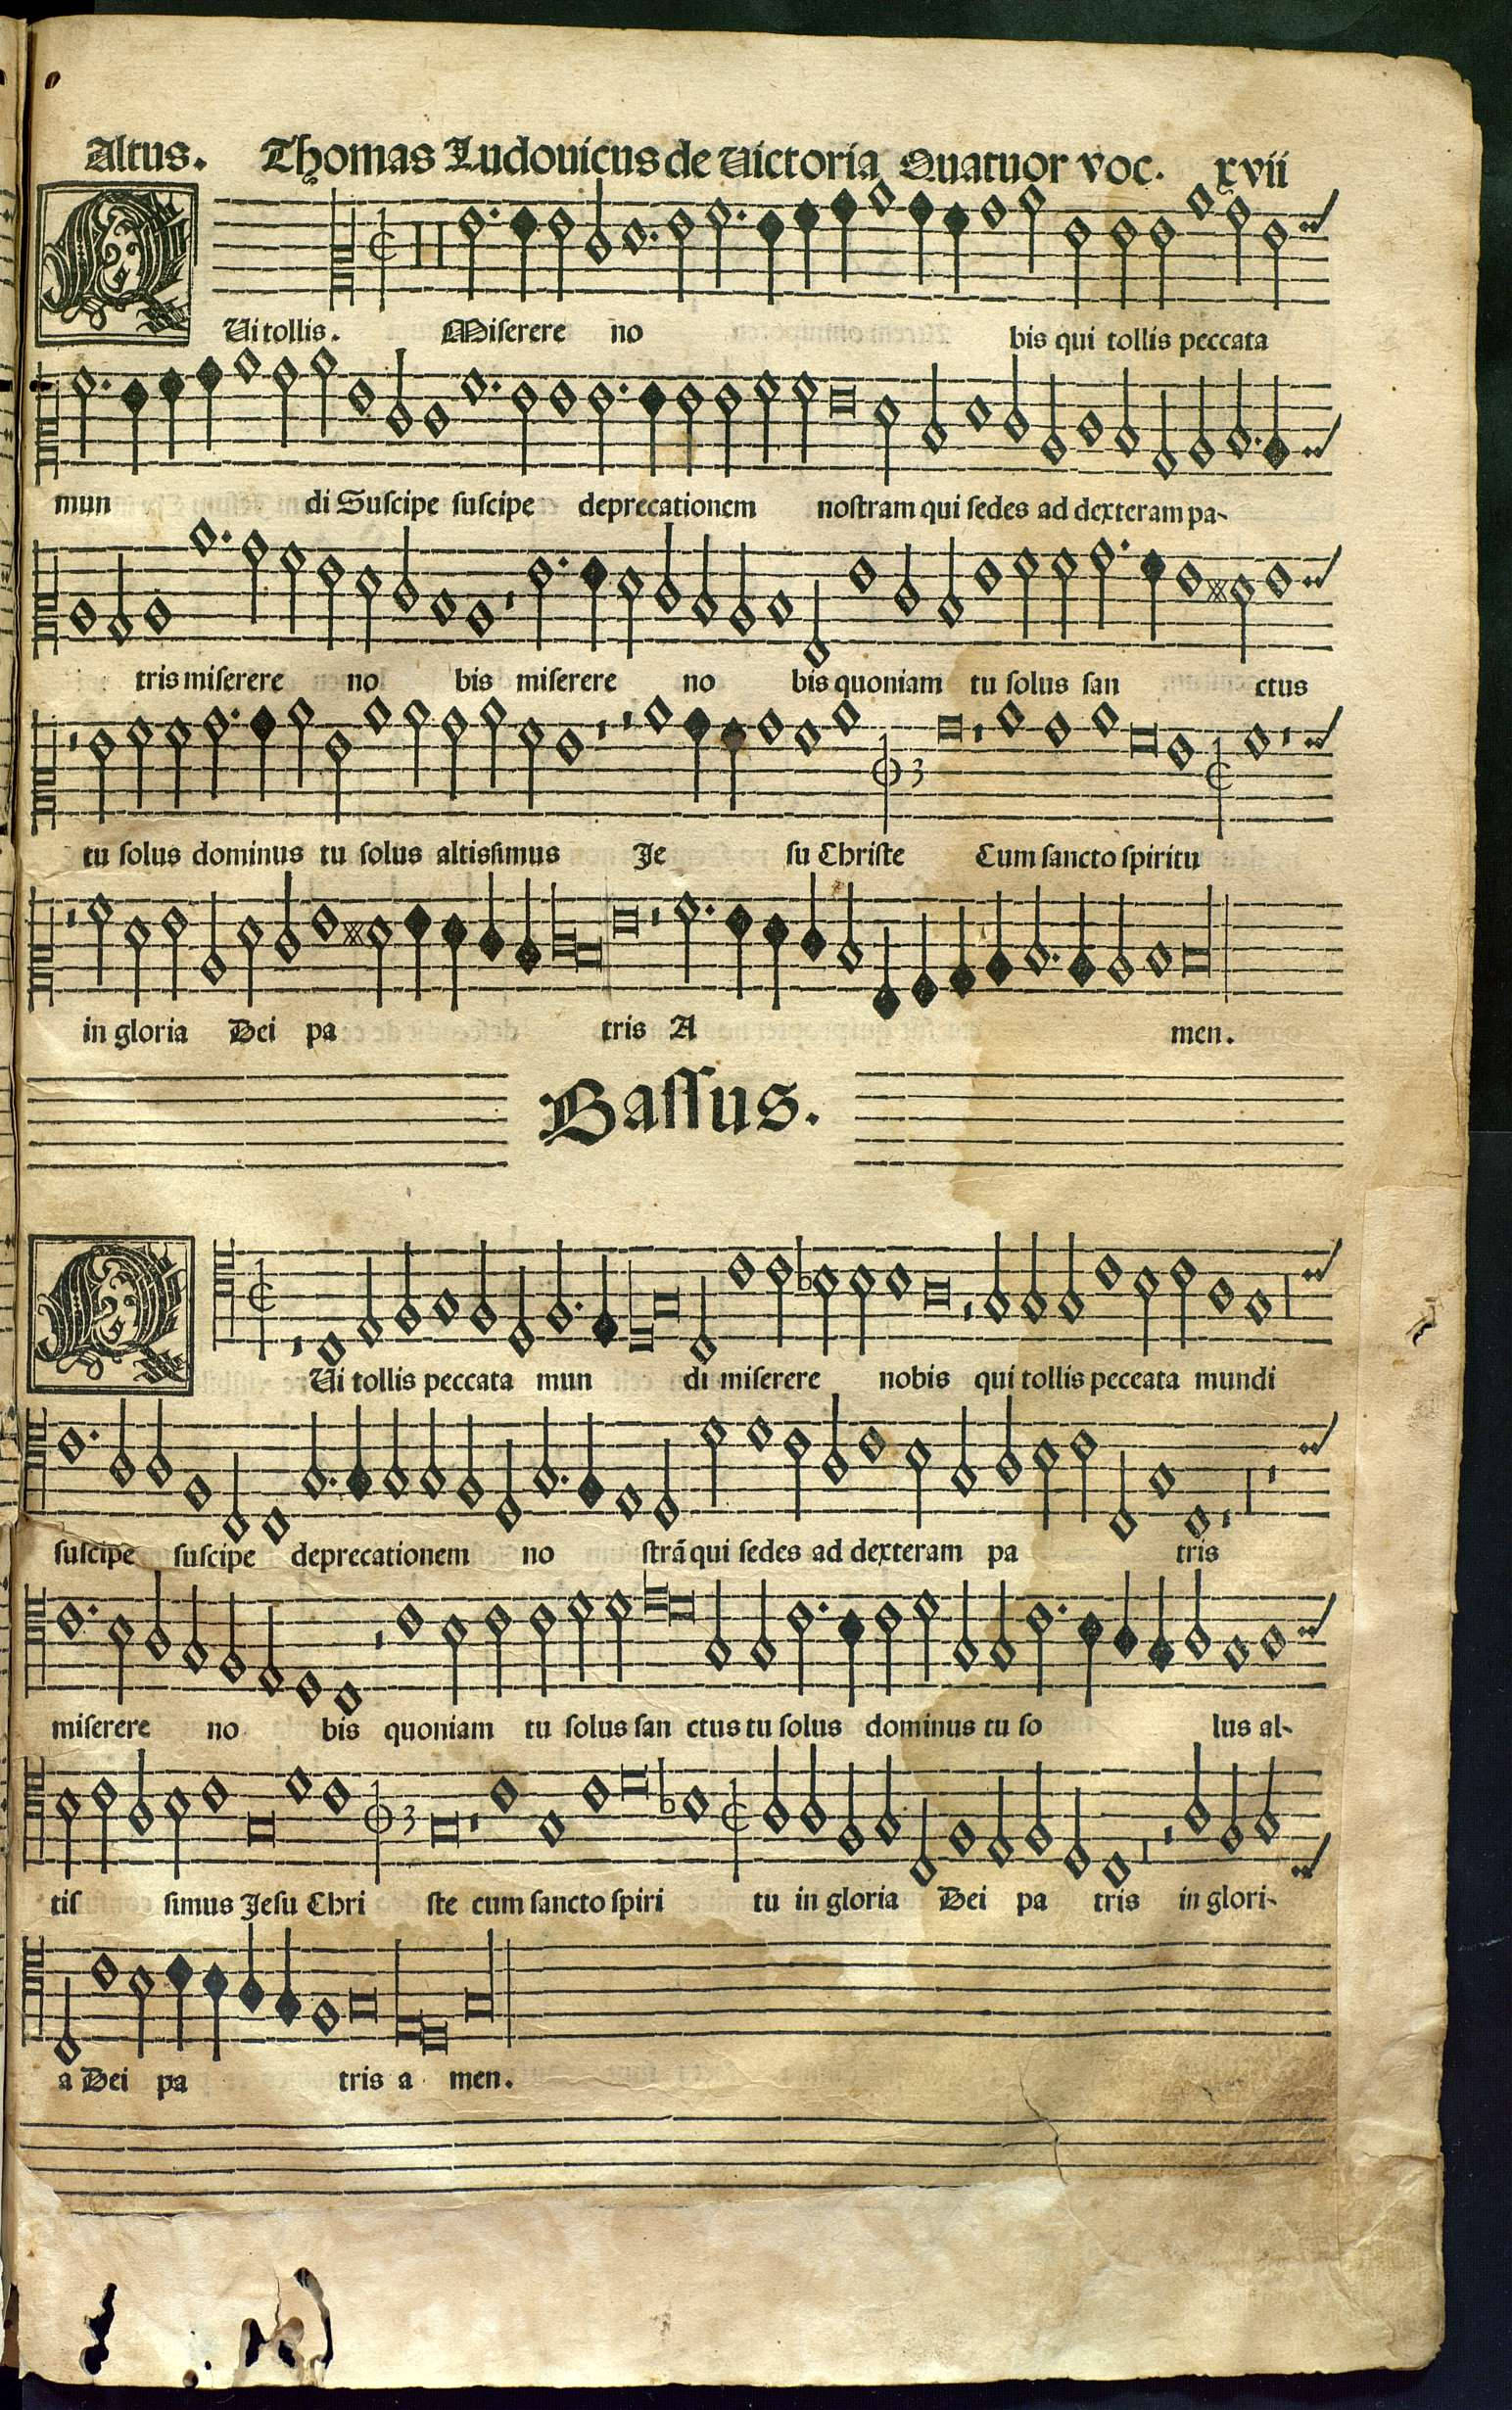 Altus. Thomas Ludouicus de Uictoria Quatuor voc. xvii
QUi tollis. Miſerere no bis qui tollis peccata
mun di Suſcipe ſuſcipe deprecationem noſtram qui ſedes ad dexteram pa-
tris miſerere no bis miſerere no bis quoniam tu ſolus ſan ctus
tu ſolus dominus tu ſolus altiſsimus Je ſu Chriſte Cum ſancto ſpiritu
in gloria Dei pa tris A men.
Baſſus.
QUi tollis peccata mun di miſerere nobis qui tollis peccata mundi
ſuſcipe ſuſcipe deprecationem no ſtrā qui ſedes ad dexteram pa tris
miſerere no bis quoniam tu ſolus ſan ctus tu ſolus dominus tu ſo lus al-
tiſ ſimus Jeſu Chri ſte cum ſancto ſpiri tu in gloria Dei pa tris in glori-
a Dei pa tris a men.